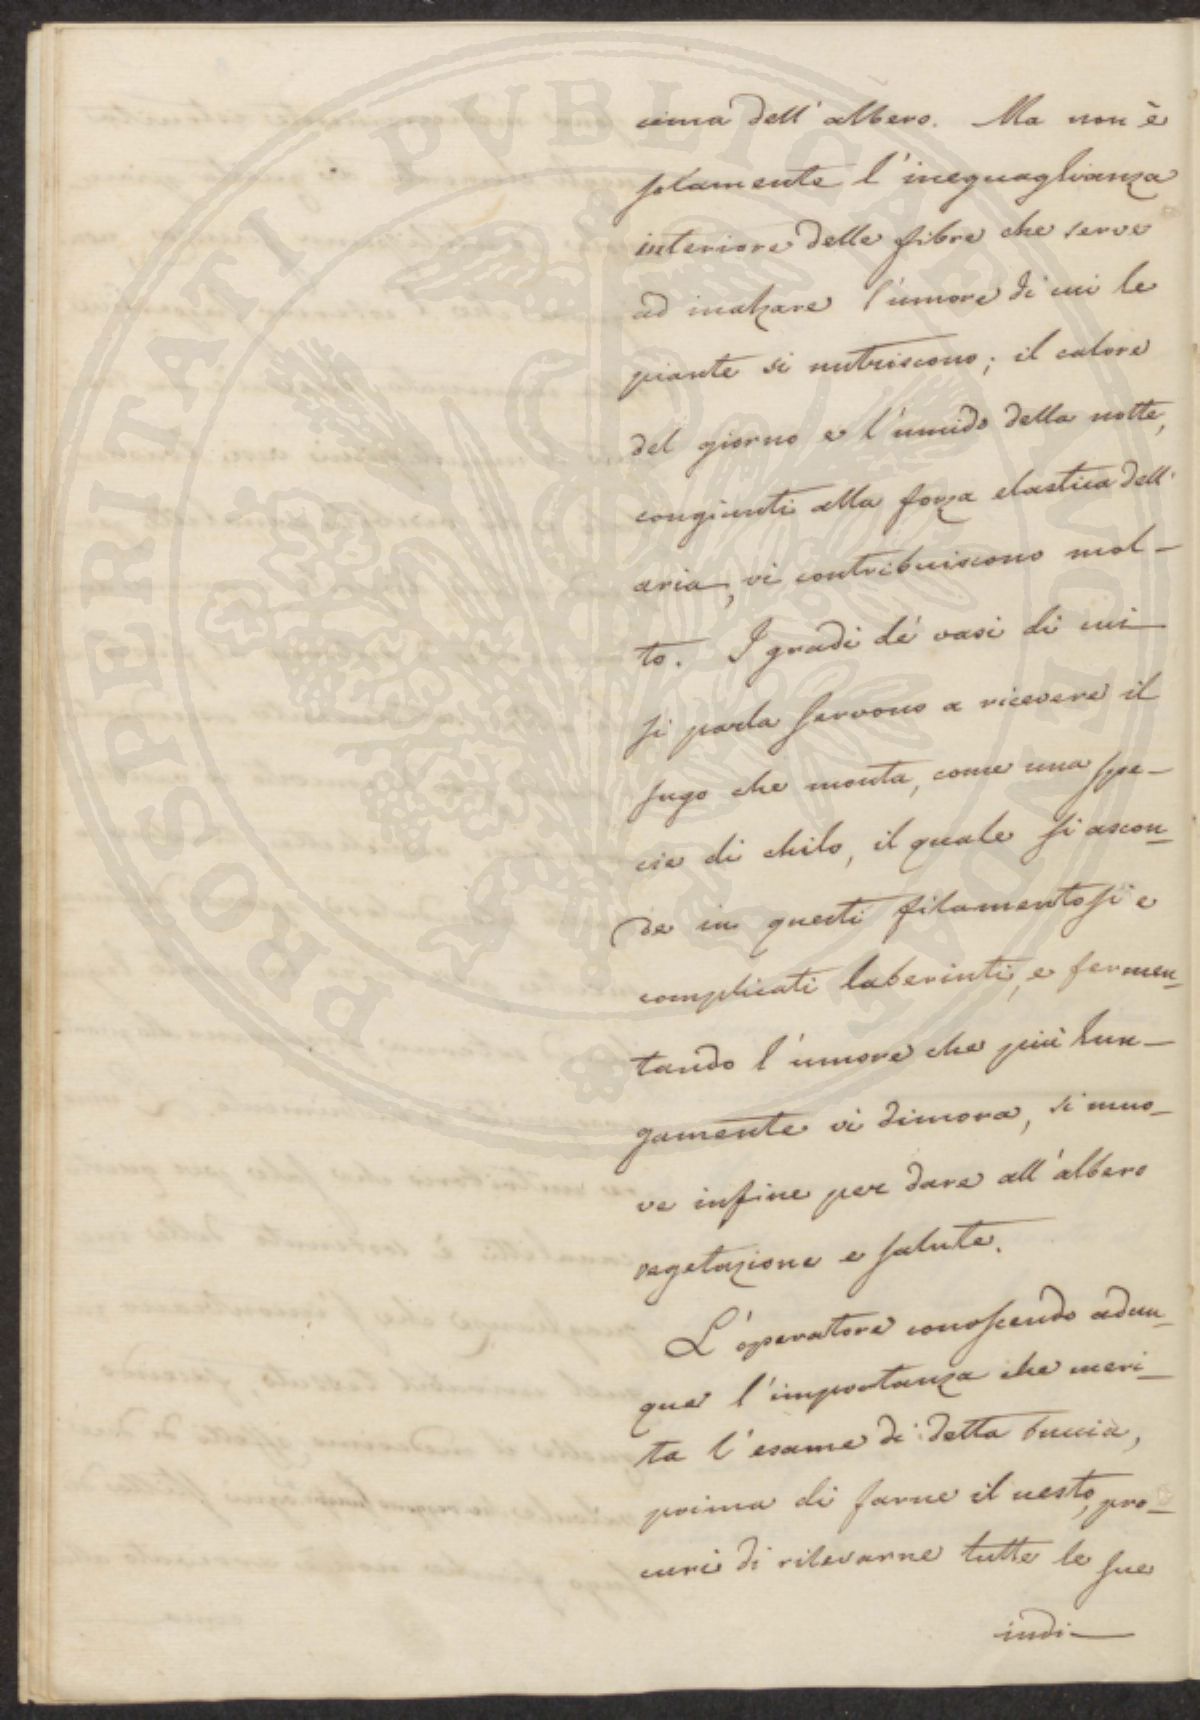 cima dell' albero. Ma non è
solamente l'ineguaglianza
interiore delle fibre che serve
ad inalzare l'umore di cui le
piante si nutriscono; il calore
del giorno e l'umido della notte,
congiunti alla forza elastica dell'
aria, vi contribuiscono mol-
to. I gradi de' vasi di cui
si parla servono a ricevere il
sugo che monta, come una spe-
cie di chilo, il quale si ascon-
de in questi filamentosi e
complicati laberinti, e fermen-
tando l'umore che più lun-
gamente vi dimora, si muo-
ve infine per dare all'albero
vegetazione e salute.
L'operatore conoscendo adun-
que l'importanza che meri-
ta l'esame di detta buccia,
prima di farne il nesto, pro-
curi di rilevarne tutte le sue
indi-
PROSPERITATI PUBLICAE AUGENDAE